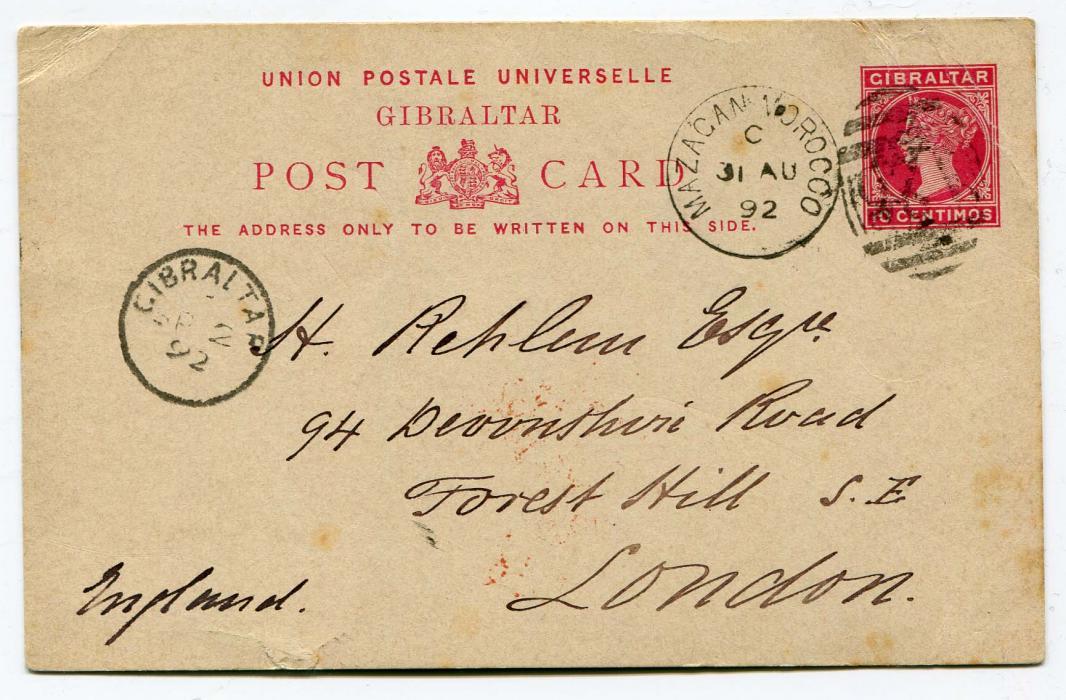 UNION POSTALE UNIVERSELLE
GIBRALTAR
POST CARD
THE ADDRESS ONLY TO BE WRITTEN ON THIS SIDE.
GIBRALTAR
10 CENTIMOS
MAZAGAN MOROCCO
C
31 AU
92
GIBRALTAR
SP 2
92
H. Rehlem Esqre
94 Devonshire Road
Forest Hill S.E
London.
England.